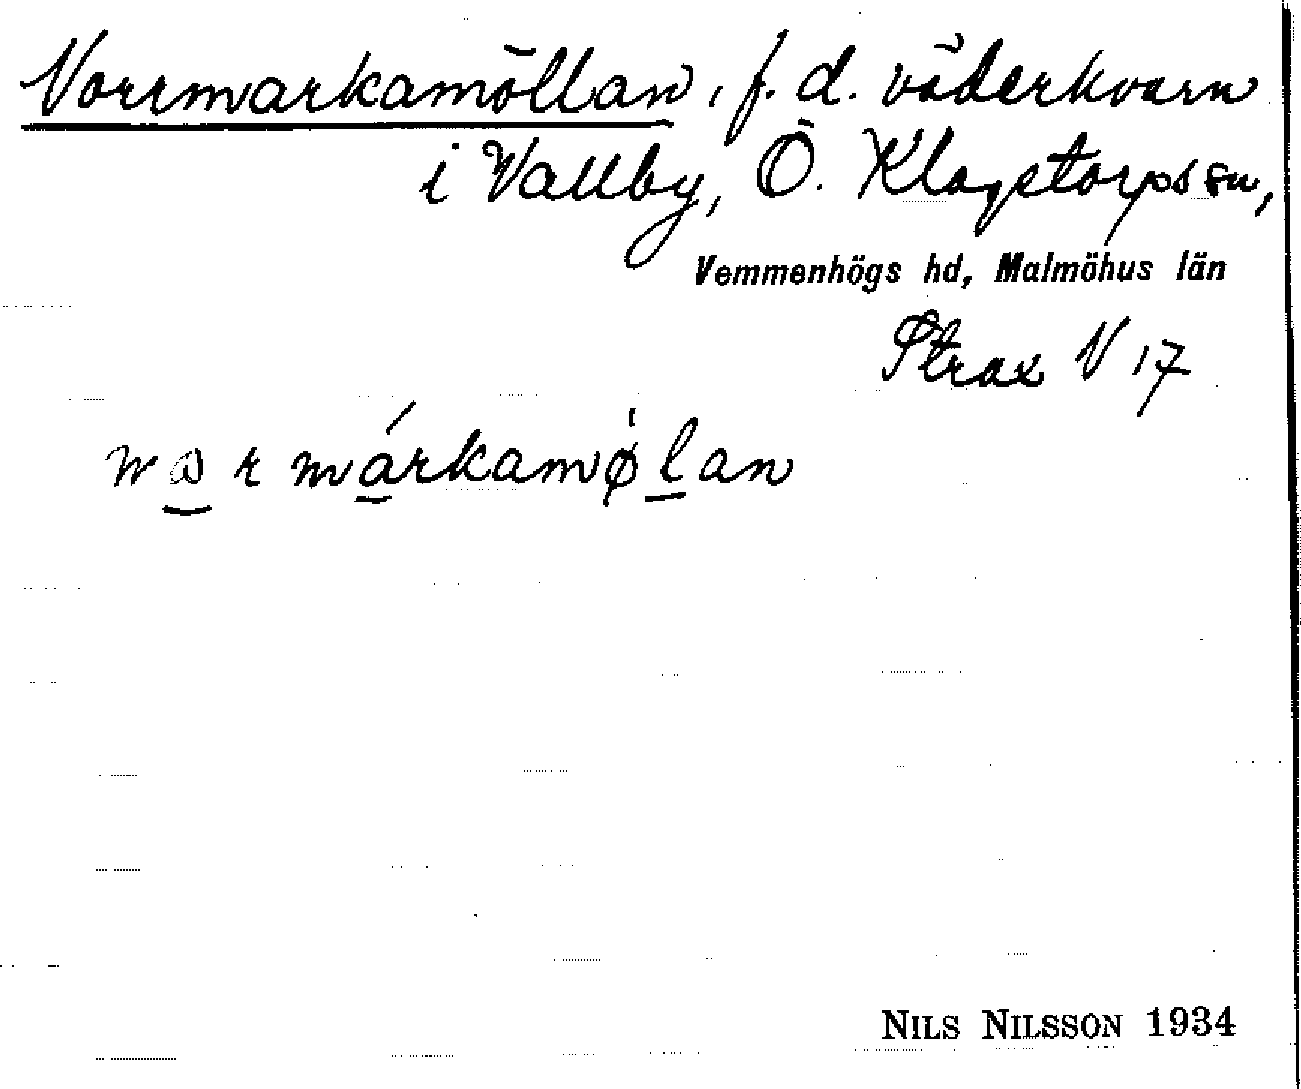 Vorrmarkamöllan, f. d. väderkvarn
i Vallby, Ö. Klagstorps sn,
Vemmenhögs hd, Malmöhus län
Strax V 17
war márkamølan
NILS NILSSON 1934